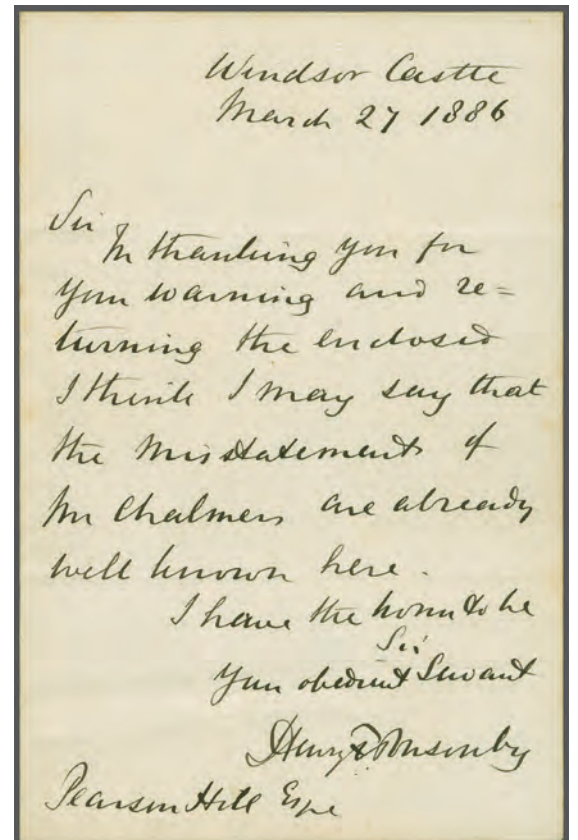 Windsor Castle
March 27 1886
Sir
In thanking you for
your warning and re=
turning the enclosed
I think I may say that
the misstatements of
Mr Chalmers are already
well known here.
I have the honor to be
Sir
Your obedient Servant
Henry F Ponsonby
Pearson Hill Esqre